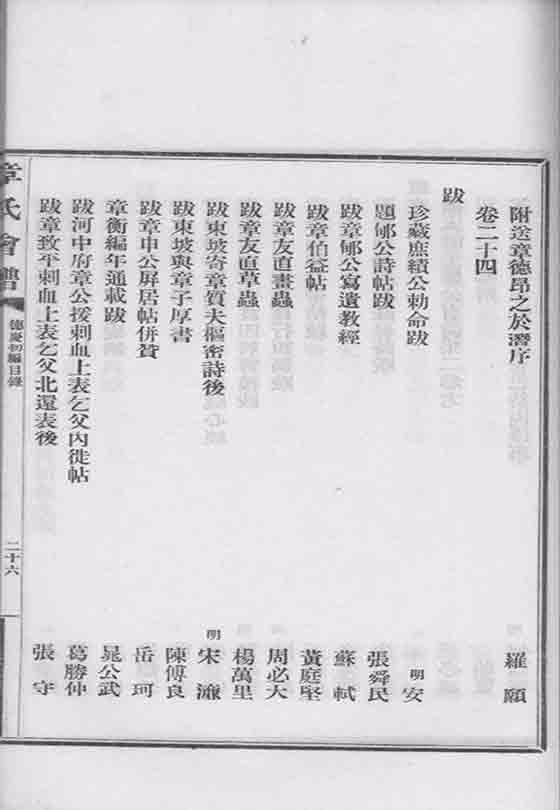 附送章德昂之於潛序 羅願
卷二十四
跋
珍藏庶績公勅命跋 明 安
題郇公詩帖跋 張舜民
跋章郇公寫遺教經 蘇軾
跋章伯益帖 黃庭堅
跋章友直畫蟲 周必大
跋章友直草蟲 楊萬里
跋東坡寄章質夫樞密詩後 明 宋濂
跋東坡與章子厚書 陳傅良
跋章申公屏居帖併贊 岳珂
章衡編年通載跋 晁公武
跋河中府章公援刺血上表乞父內徙帖 葛勝仲
跋章致平刺血上表乞父北還表後 張守
章氏會譜 德慶初編目錄 二十六